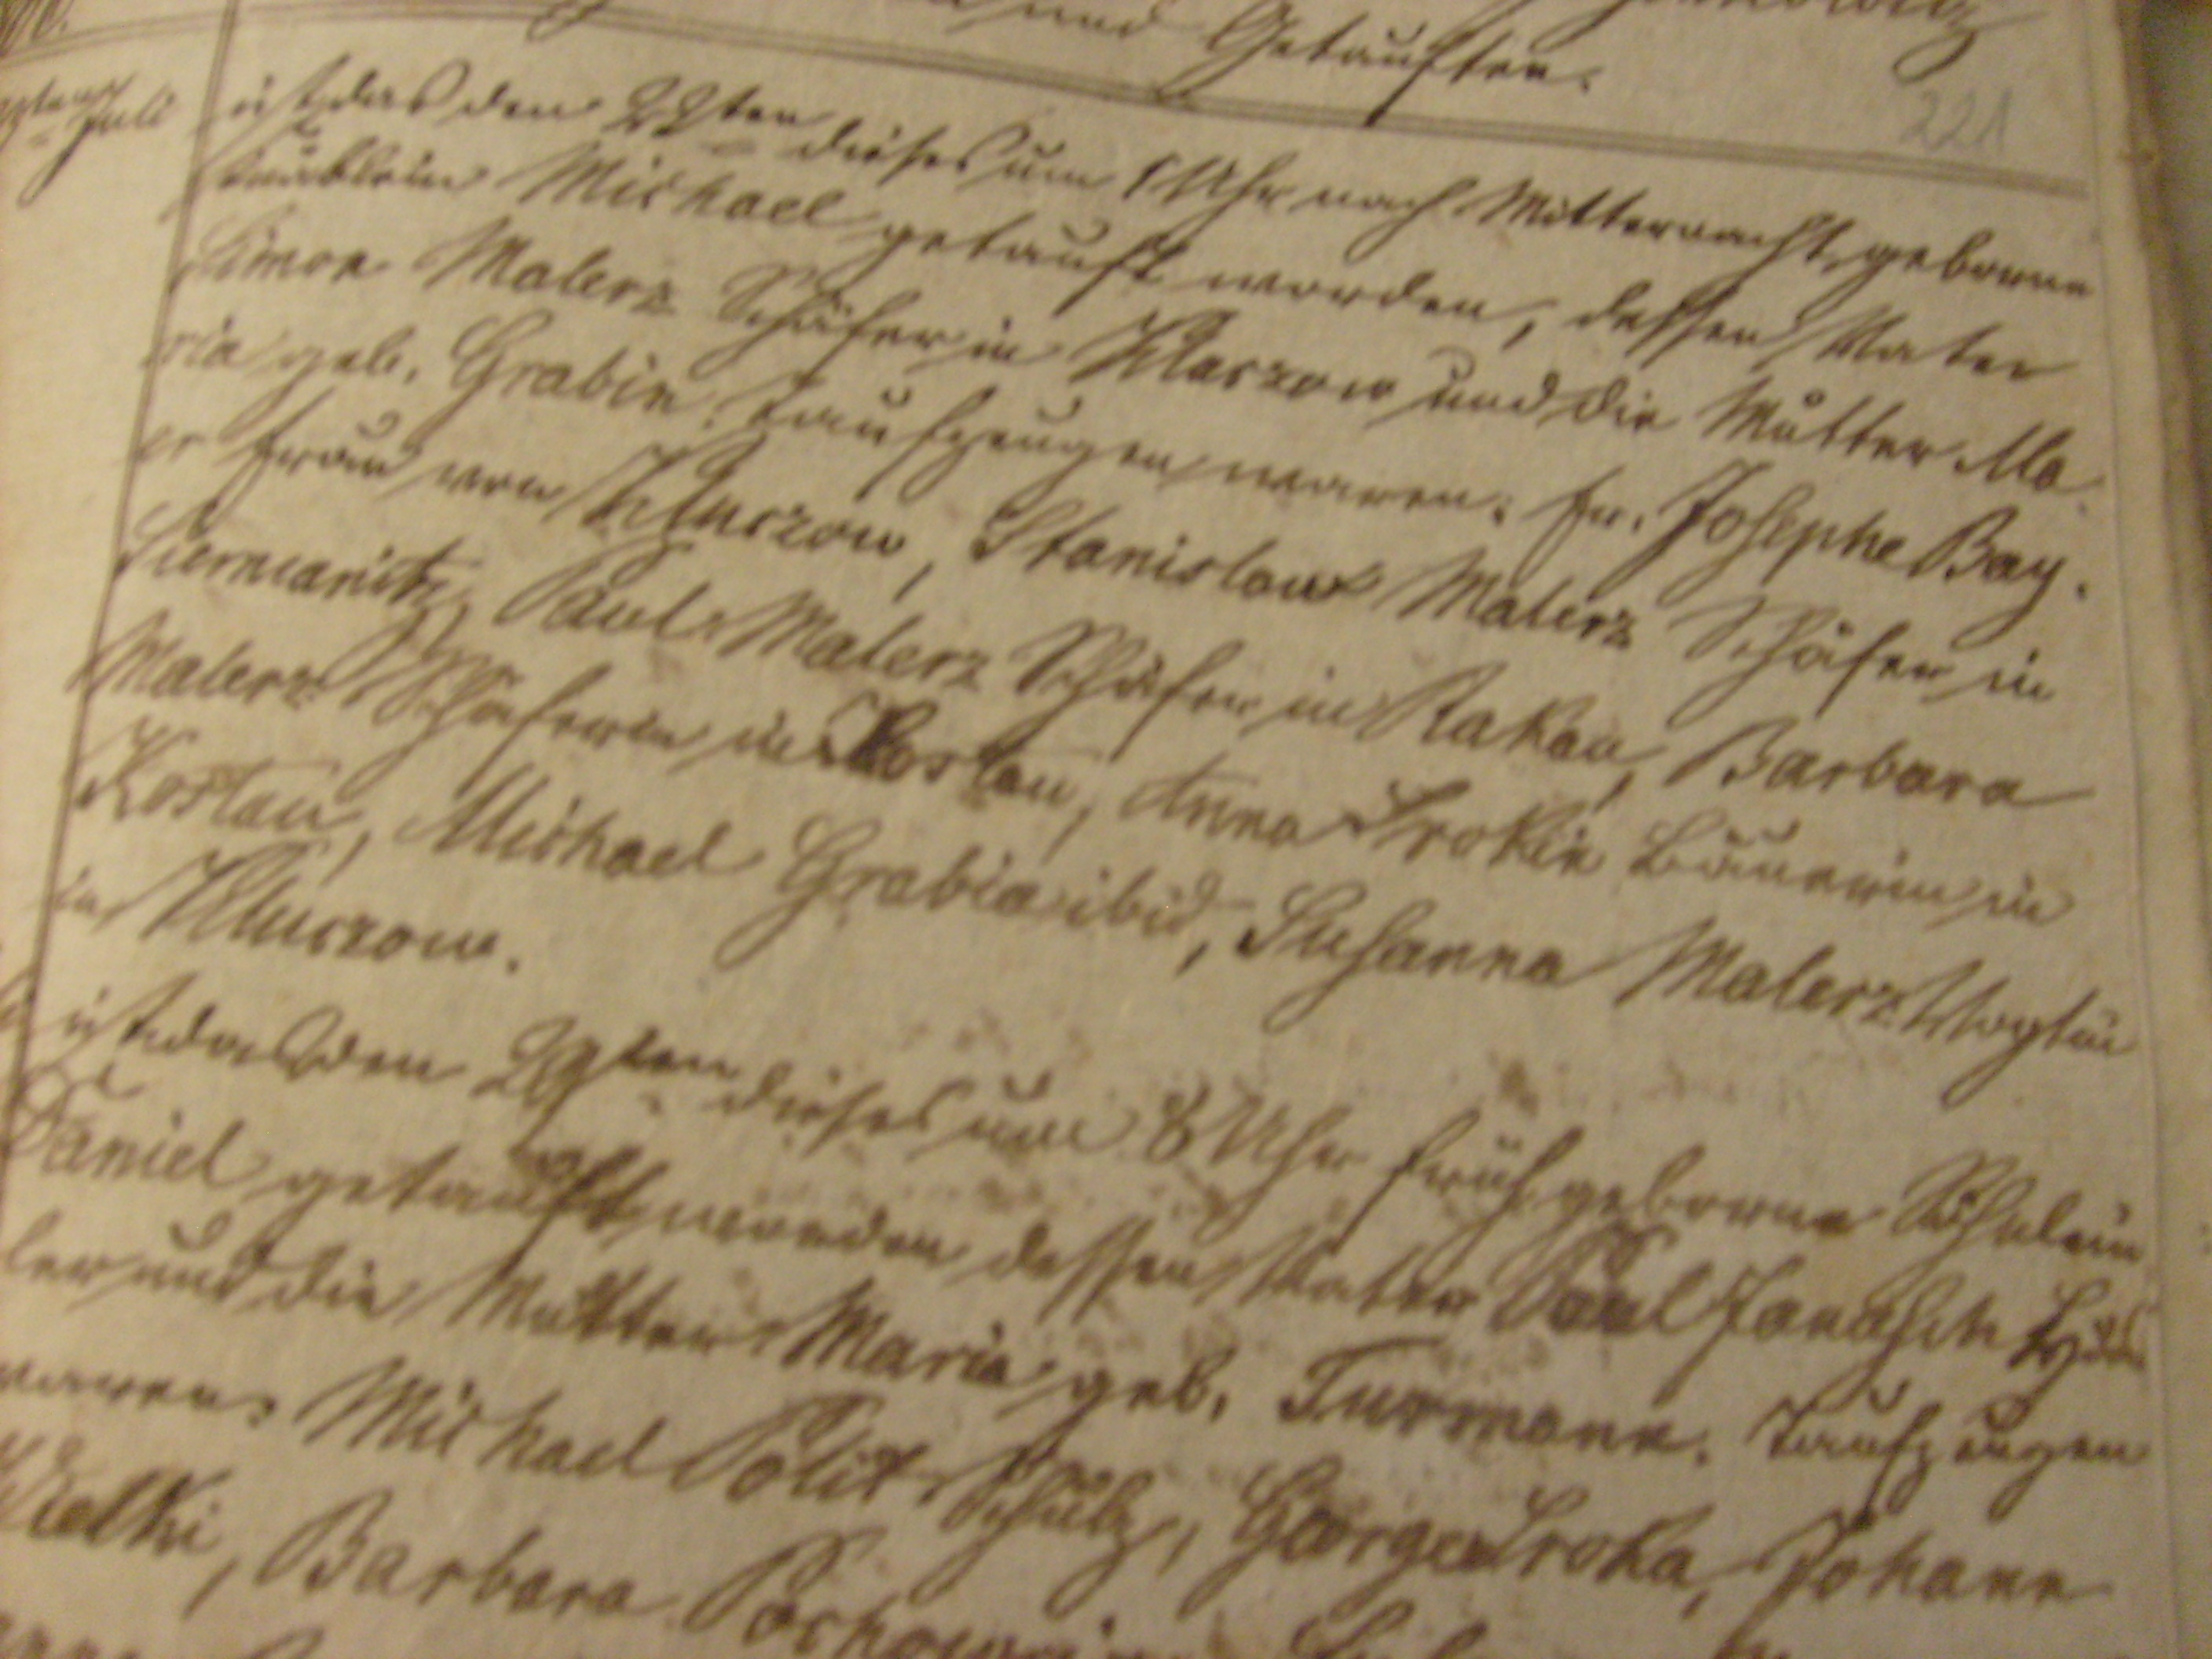 und Getauften.
221
Juli
ist das den 22ten dieses um 1 Uhr nach Mitternacht geborne
Knäblein Michael getauft worden, dessen Vater
Simon Malerz Schäfer in Kluczow und die Mutter Ma-
ria geb. Grabin. Taufzeugen waren: Fr. Josephe Bay.
Frau von Kluczow, Stanislaus Malerz Schäfer in
Paul Malerz Schäfer in Rakau, Barbara
Malerz Schäferin in Kostau, Anna Srokin Bäuerin in
Kostau, Michael Grabia ibid, Susanna Malerz Vogtin
in Kluczow.
ist das den 29ten dieses um 8 Uhr früh geborne Söhnlein
Daniel getauft worden dessen Vater Paul Janasch
ler und die Mutter Maria geb. Turmann. Taufzeugen
waren: Michael Polit Schulz, George Sroka, Johann
Barbara